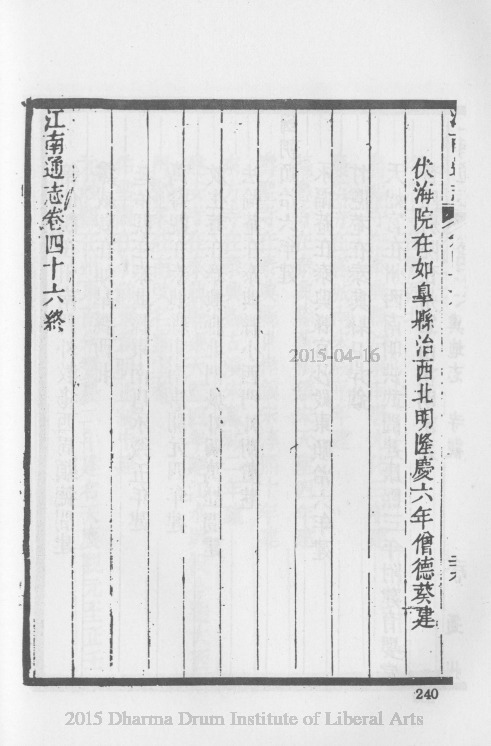 江南通志
伏海院在如臯縣治西北明隆慶六年僧德葵建
江南通志卷四十六終
2015-04-16
240
2015 Dharma Drum Institute of Liberal Arts